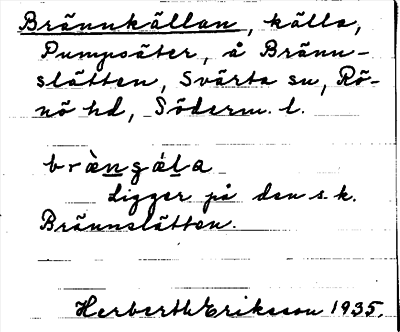 Brännkällan, källa,
Pumpsäter, å Bränn-
slätten, Svärta sn, Rö-
nö hd, Söderm. l.
brὰngǽla
Ligger på den s.k.
Brännslätten.
Herberth Eriksson 1935.